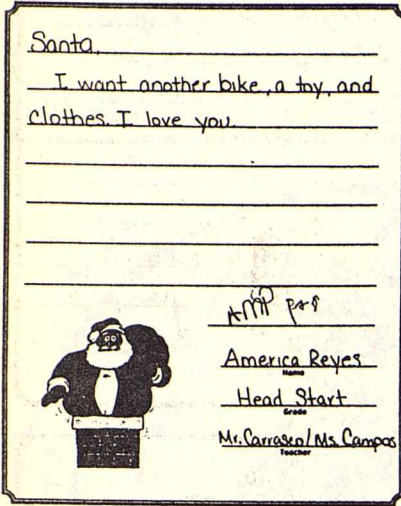 Santa,
I want another bike, a toy, and
clothes. I love you.
America Reyes
Name
Head Start
Grade
Mr. Carrasco/Ms. Campos
Teacher